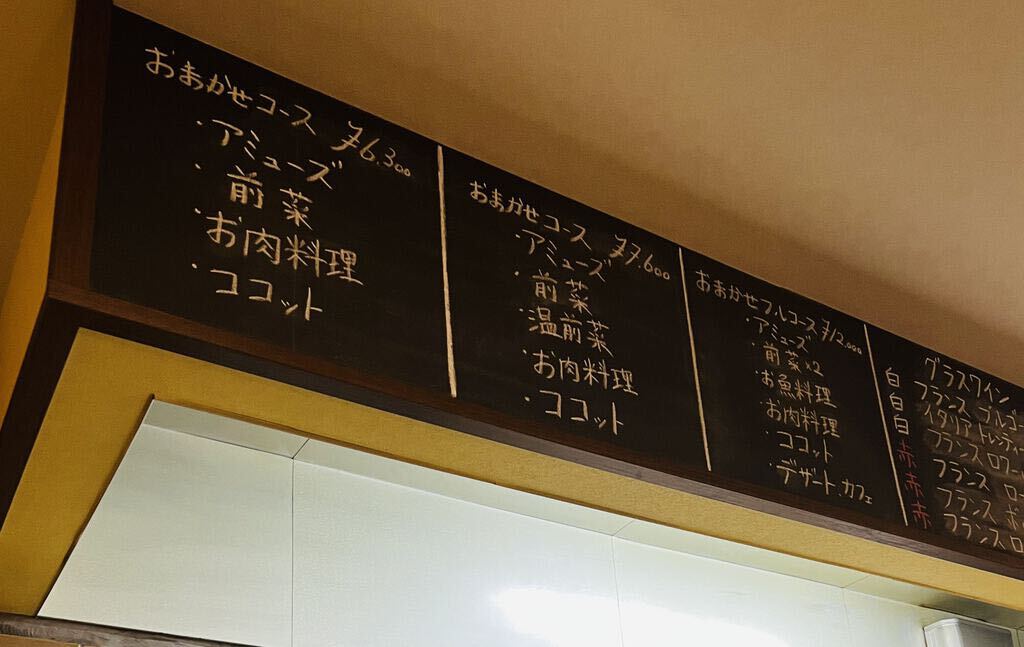 おまかせコース ¥6.300
・アミューズ
・前菜
・お肉料理
・ココット
おまかせコース ¥7.600
・アミューズ
・前菜
・温前菜
・お肉料理
・ココット
おまかせフルコース ¥12.000
・アミューズ
・前菜×2
・お魚料理
・お肉料理
・ココット
・デザート.カフェ
グラスワイン
白 フランス ブルゴー
白 イタリア トレンティー
白 フランス ロワー
赤 フランス ロー
赤 フランス ボ
赤 フランス ロ